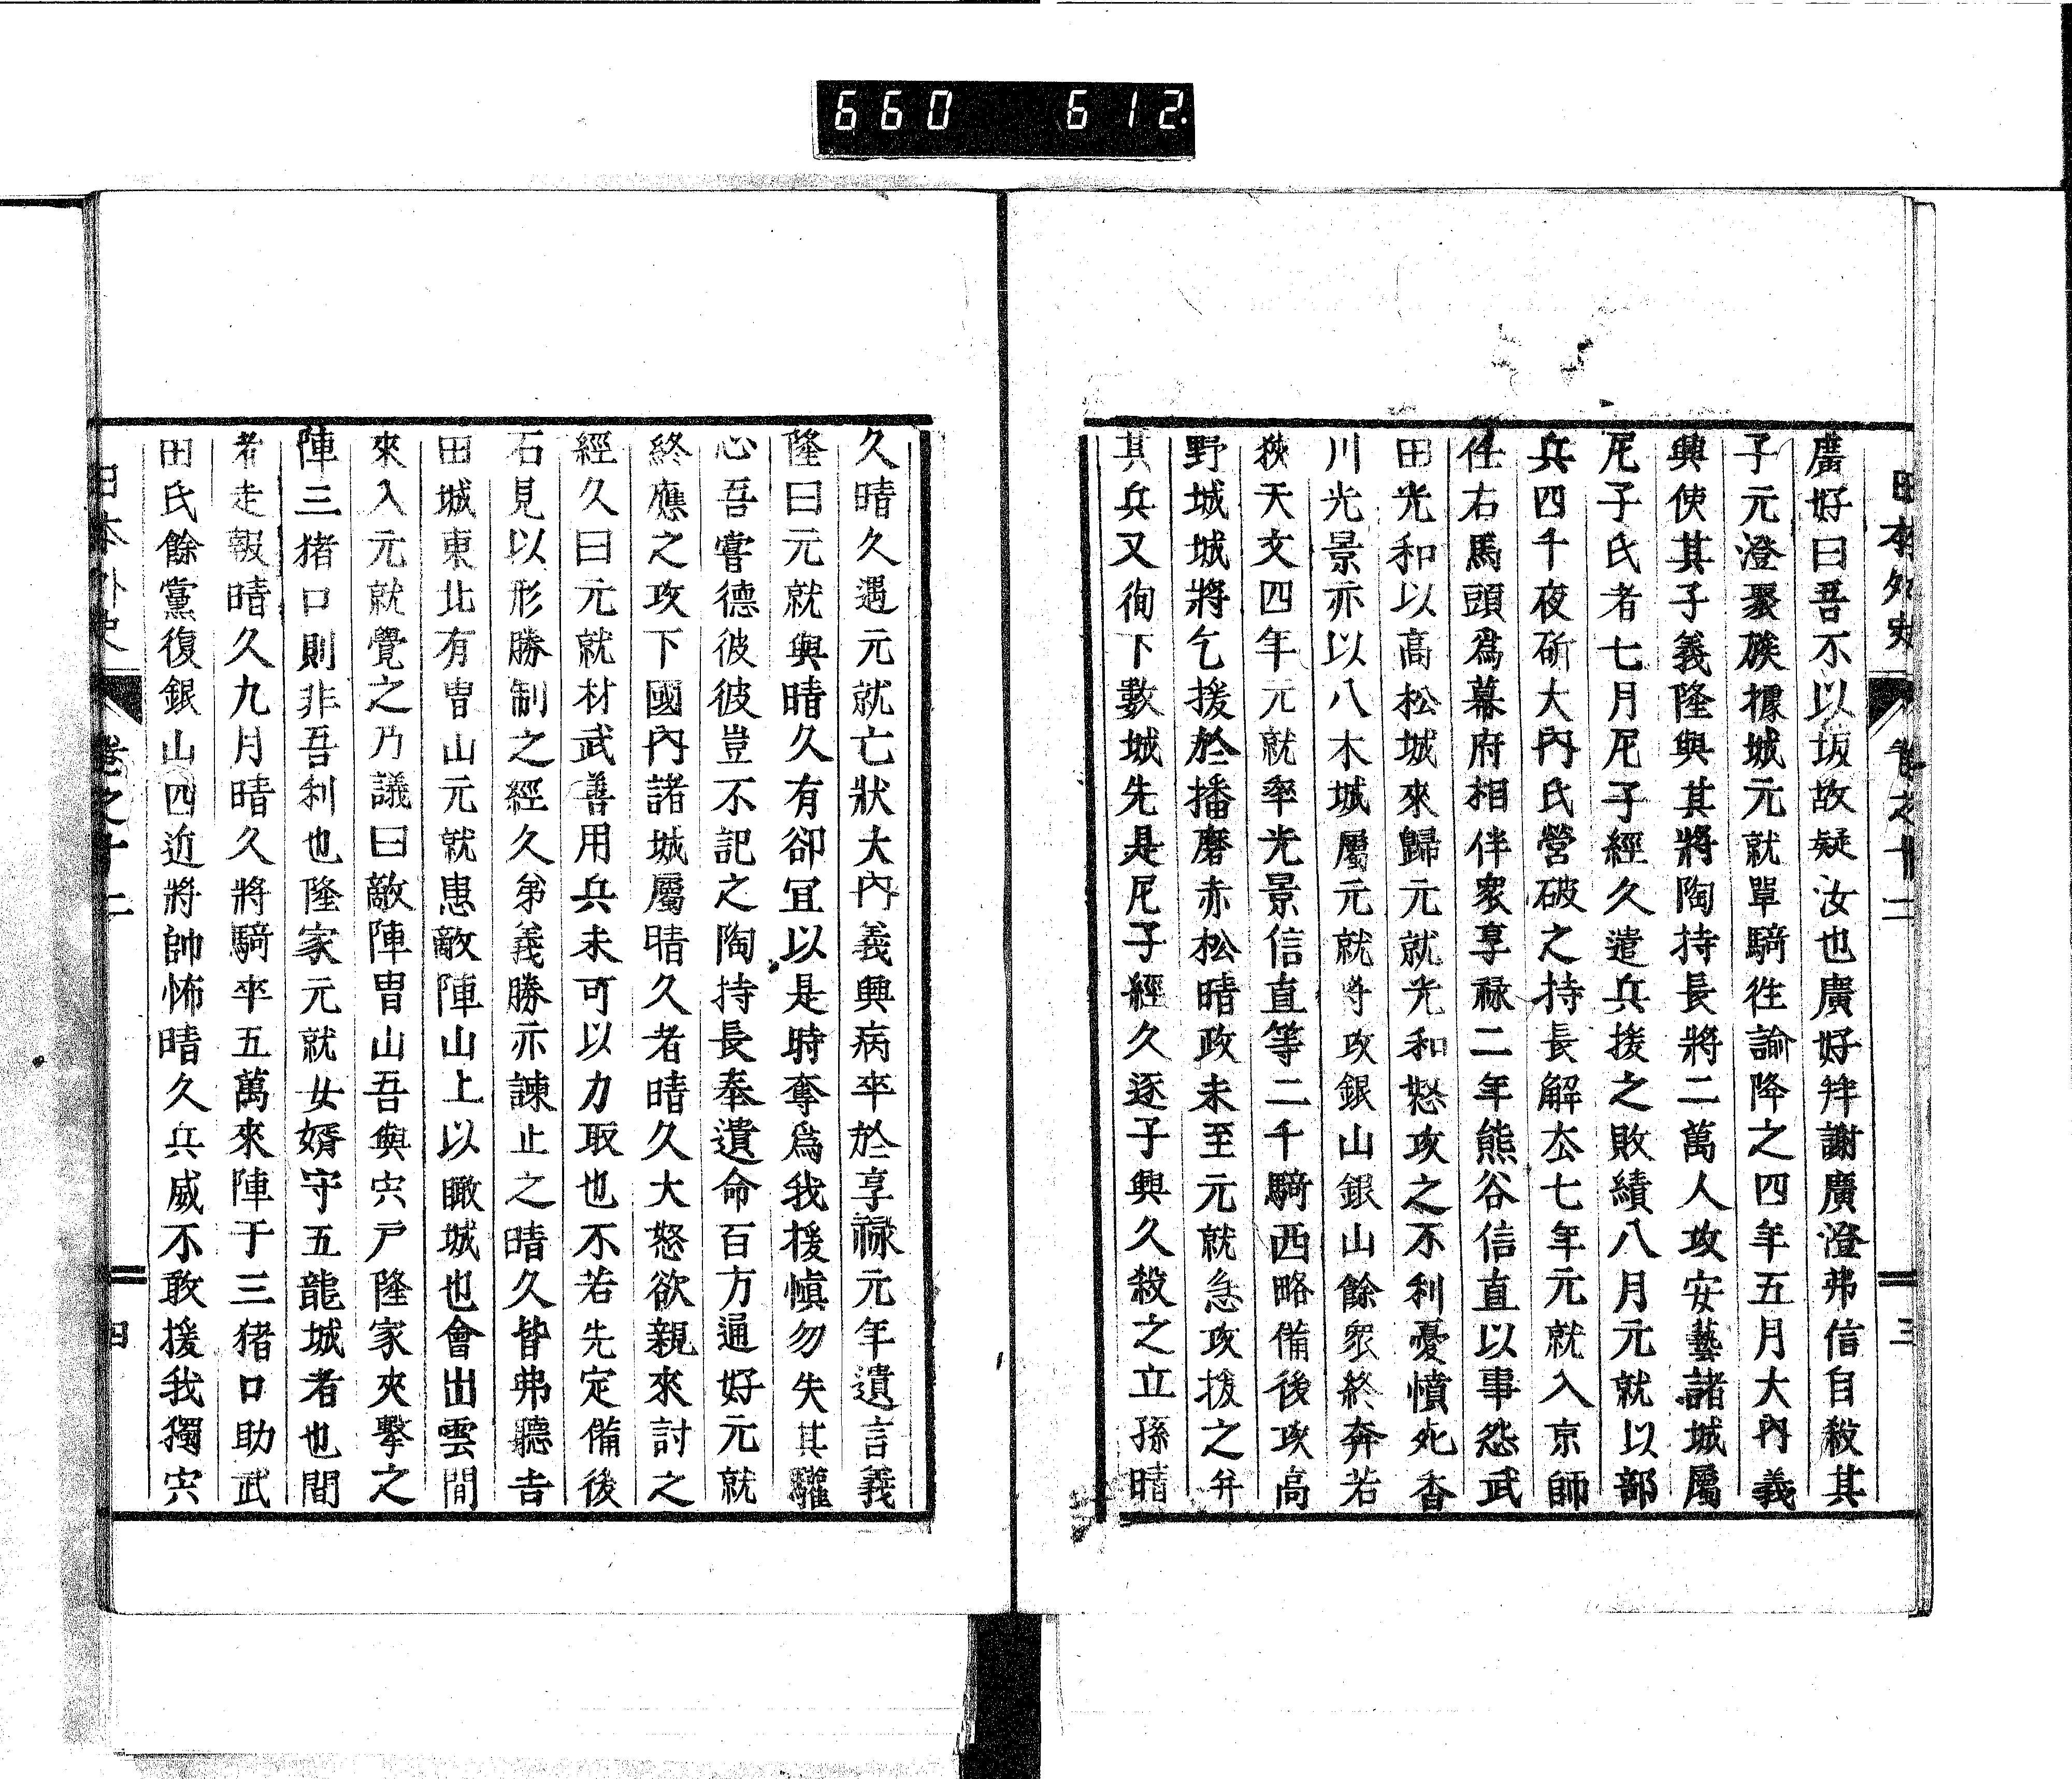 660 612.
日本外史 卷之十二 三
廣好曰吾不以坂故疑汝也廣好拜謝廣澄弗信自殺其
子元澄聚族據城元就單騎往諭降之四年五月大內義
興使其子義隆與其將陶持長將二萬人攻安藝諸城屬
尼子氏者七月尼子經久遣兵援之敗績八月元就以部
兵四千夜斫大內氏營破之持長解去七年元就入京師
任右馬頭爲幕府相伴衆享祿二年熊谷信直以事怨武
田光和以高松城來歸元就光和怒攻之不利憂憤死香
川光景亦以八木城屬元就守攻銀山銀山餘衆終奔若
狹天文四年元就率光景信直等二千騎西略備後攻高
野城城將乞援於播磨赤松晴政未至元就急攻拔之幷
其兵又徇下數城先是尼子經久逐子興久殺之立孫晴
久晴久遇元就亡狀大內義興病卒於享祿元年遺言義
隆曰元就與晴久有卻宜以是時奪爲我援愼勿失其驩
心吾嘗德彼彼豈不記之陶持長奉遺命百方通好元就
終應之攻下國內諸城屬晴久者晴久大怒欲親來討之
經久曰元就材武善用兵未可以力取也不若先定備後
石見以形勝制之經久弟義勝亦諫止之晴久皆弗聽吉
田城東北有冑山元就患敵陣山上以瞰城也會出雲間
來入元就覺之乃議曰敵陣冑山吾與宍戶隆家夾擊之
陣三猪口則非吾利也隆家元就女婿守五龍城者也間
者走報晴久九月晴久將騎卒五萬來陣于三猪口助武
田氏餘黨復銀山四近將帥怖晴久兵威不敢援我獨宍
日本外史 卷之十二 四